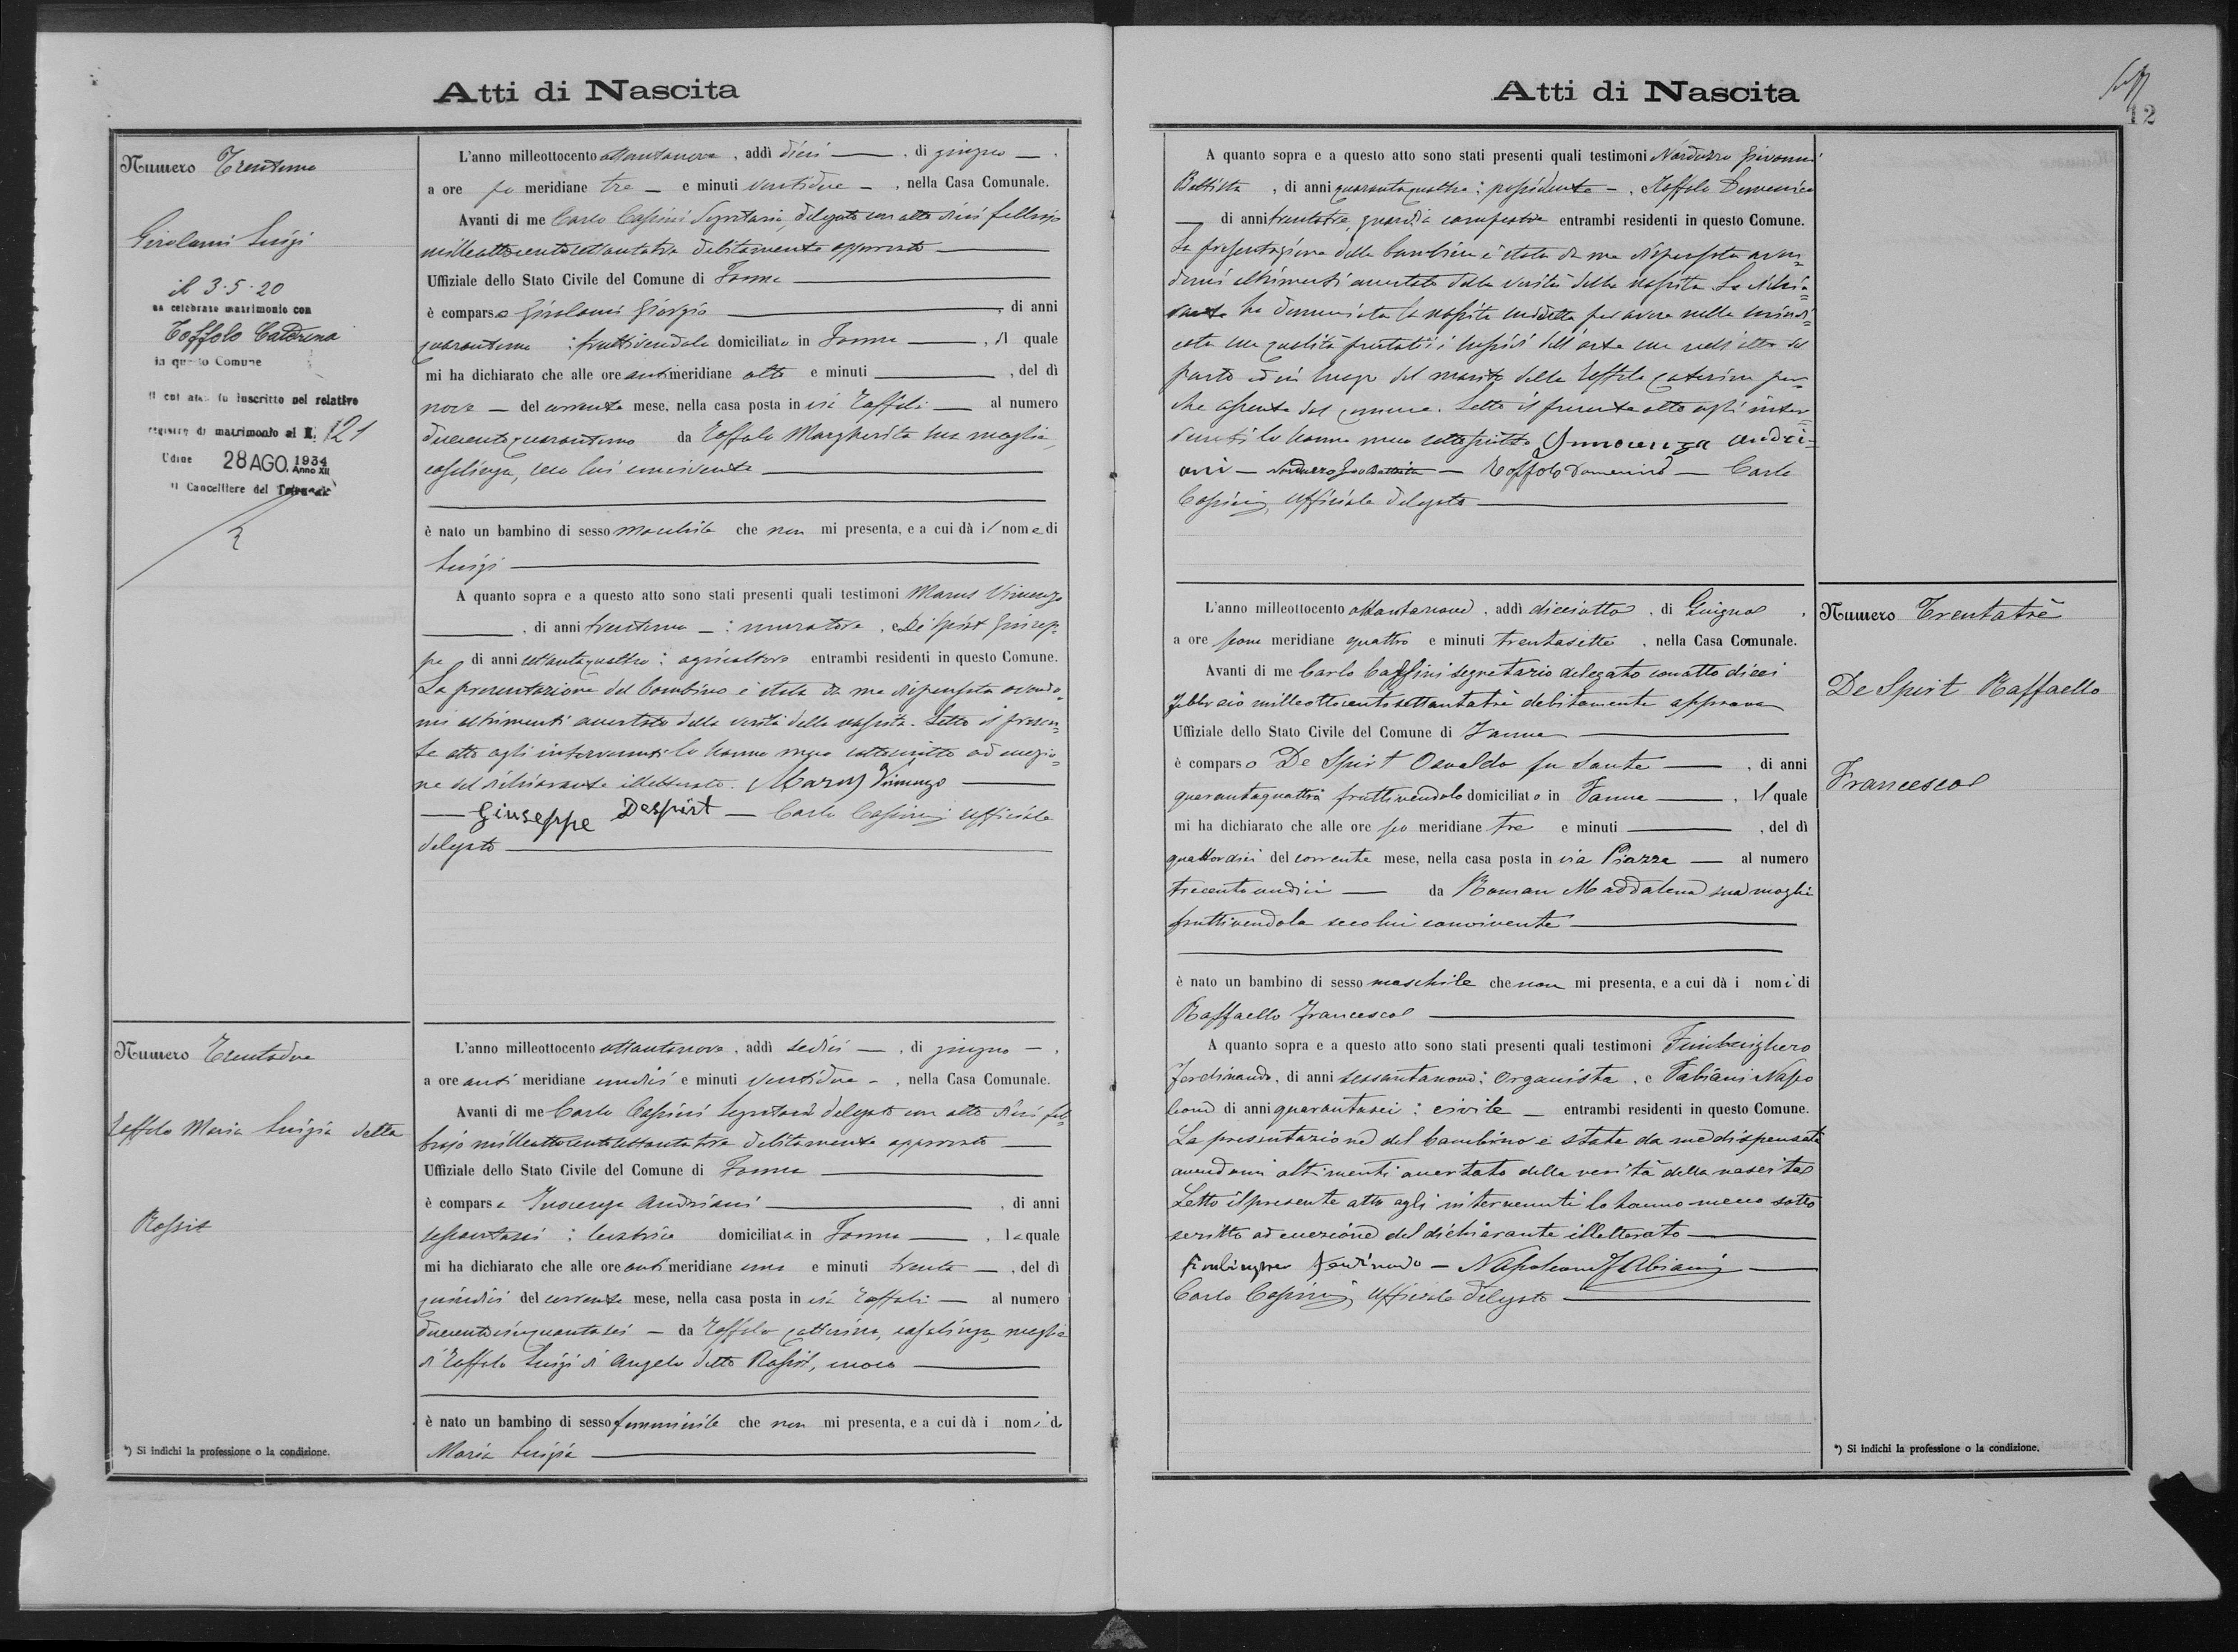 Atti di Nascita
Numero Trentuno
Girolami Luigi
il 3-5-20
ha celebrato matrimonio con
Toffolo Caterina
in questo Comune
il cui atto fu inscritto nel relativo
registro di matrimonio al N. 121
Udine 28 AGO. 1934 Anno XII
Il Cancelliere del Tribunale
L'anno milleottocento ottantanove, addì dieci, di giugno,
a ore po meridiane tre e minuti ventidue, nella Casa Comunale.
Avanti di me Carlo Cassini Segretario, delegato con atto dieci febbrajo
milleottocentosettantatre debitamente approvato
Uffiziale dello Stato Civile del Comune di Fanna
è comparso Girolami Giorgio, di anni
quarantuno; fruttivendolo domiciliato in Fanna, il quale
mi ha dichiarato che alle ore antimeridiane otto e minuti, del dì
nove del corrente mese, nella casa posta in via Toffoli al numero
duecentoquarantuno da Toffolo Margherita sua moglie,
casalinga, seco lui convivente
è nato un bambino di sesso maschile che non mi presenta, e a cui dà il nome di
Luigi
A quanto sopra e a questo atto sono stati presenti quali testimoni Marus Vincenzo
, di anni trentuno; muratore, e De Spirt Giusep-
pe di anni settantaquattro; agricoltore entrambi residenti in questo Comune.
La presentazione del bambino è stata da me dispensata avendo-
mi altrimenti accertato della verità della nascita. Letto il presen-
te atto agli intervenuti lo hanno meco sottoscritto ad eccezio-
ne del dichiarante illetterato. Marus Vincenzo
Giuseppe Despirt Carlo Cassini, Ufficiale
delegato
Numero Trentadue
Toffolo Maria Luigia detta
Rossit
L'anno milleottocento ottantanove, addì sedici, di giugno,
a ore anti meridiane undici e minuti ventidue, nella Casa Comunale.
Avanti di me Carlo Cassini Segretario delegato con atto dieci feb-
brajo milleottocentosettantatre debitamente approvato
Uffiziale dello Stato Civile del Comune di Fanna
è comparsa Inocenza Andriani, di anni
sessantasei; levatrice domiciliata in Fanna, la quale
mi ha dichiarato che alle ore antimeridiane una e minuti trenta, del dì
quindici del corrente mese, nella casa posta in via Toffoli al numero
duecentocinquantasei da Toffolo Catterina, casalinga, moglie
di Toffolo Luigi di Angelo detto Rossit,
è nato un bambino di sesso femminile che non mi presenta, e a cui dà i nomi di
Maria Luigia
*) Si indichi la professione o la condizione.
Atti di Nascita
12
A quanto sopra e a questo atto sono stati presenti quali testimoni Narduzzo Giovanni
Battista, di anni quarantaquattro; possidente, Toffolo Domenico
di anni trentatre, guardia campestre entrambi residenti in questo Comune.
La presentazione della bambina è stata da me dispensata aven-
domi altrimenti accertato della verità della nascita. La dichia-
rante ha denunciata la nascita suddetta per avere nella
cata sua qualità prestati i sussidi dell'arte sua nell'atto del
parto ed in luogo del marito della Toffolo Caterina per-
chè assente dal comune. Letto il presente atto agli inter-
venuti lo hanno meco sottoscritto Innocenza Andri-
ani Narduzzo Gio Battista Toffolo Domenico Carlo
Cassini, Ufficiale delegato
Numero Trentatrè
De Spirt Raffaello
Francesco
L'anno milleottocento ottantanove, addì dieciotto, di Giugno,
a ore pom meridiane quattro e minuti trentasette, nella Casa Comunale.
Avanti di me Carlo Cassini segretario delegato con atto dieci
febbraio milleottocentosettantatrè debitamente approva
Uffiziale dello Stato Civile del Comune di Fanna
è comparso De Spirt Osvaldo fu Sante, di anni
quarantaquattro fruttivendolo domiciliato in Fanna, il quale
mi ha dichiarato che alle ore po meridiane tre e minuti, del dì
quattordici del corrente mese, nella casa posta in via Piazza al numero
trecentoundici da Roman Maddalena sua moglie
fruttivendola seco lui convivente
è nato un bambino di sesso maschile che non mi presenta, e a cui dà i nomi di
Raffaello Francesco
A quanto sopra e a questo atto sono stati presenti quali testimoni Fimbinghero
Ferdinando, di anni sessantanove; organista, e Fabiani Napo
leone di anni quarantasei; civile entrambi residenti in questo Comune.
La presentazione del bambino è stata da me dispensata
avendomi altimenti accertato della verità della nascita
Letto il presente atto agli intervenuti lo hanno meco sotto
scritto ad eccezione del dichiarante illetterato
Ferdinando Napoleone Fabiani
Carlo Cassini, Ufficiale delegato
*) Si indichi la professione o la condizione.